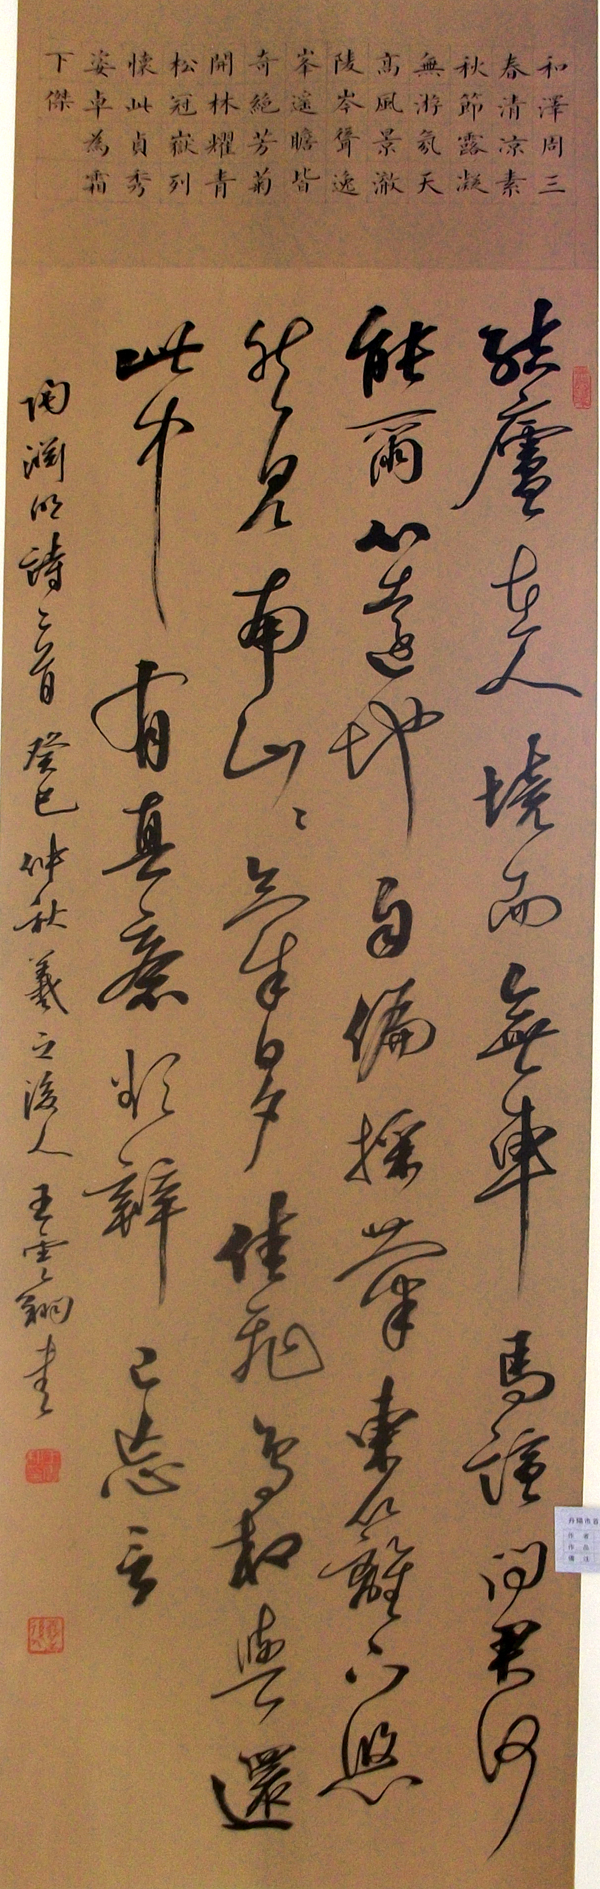 和澤周三
春清凉素
秋節露凝
無游氛天
高風景澈
陵岑聳逸
峯遥瞻皆
奇絶芳菊
開林耀青
松冠巖列
懷此貞秀
姿卓為霜
下傑
結廬在人境而無車馬諠問君何
能爾心遠地自偏採菊東籬下悠
然見南山山氣日夕佳飛鳥相與還
此中有真意欲辯已忘言
陶淵明詩二首癸巳仲秋羲之後人王雲翔書
丹陽市
作者
作品
備注